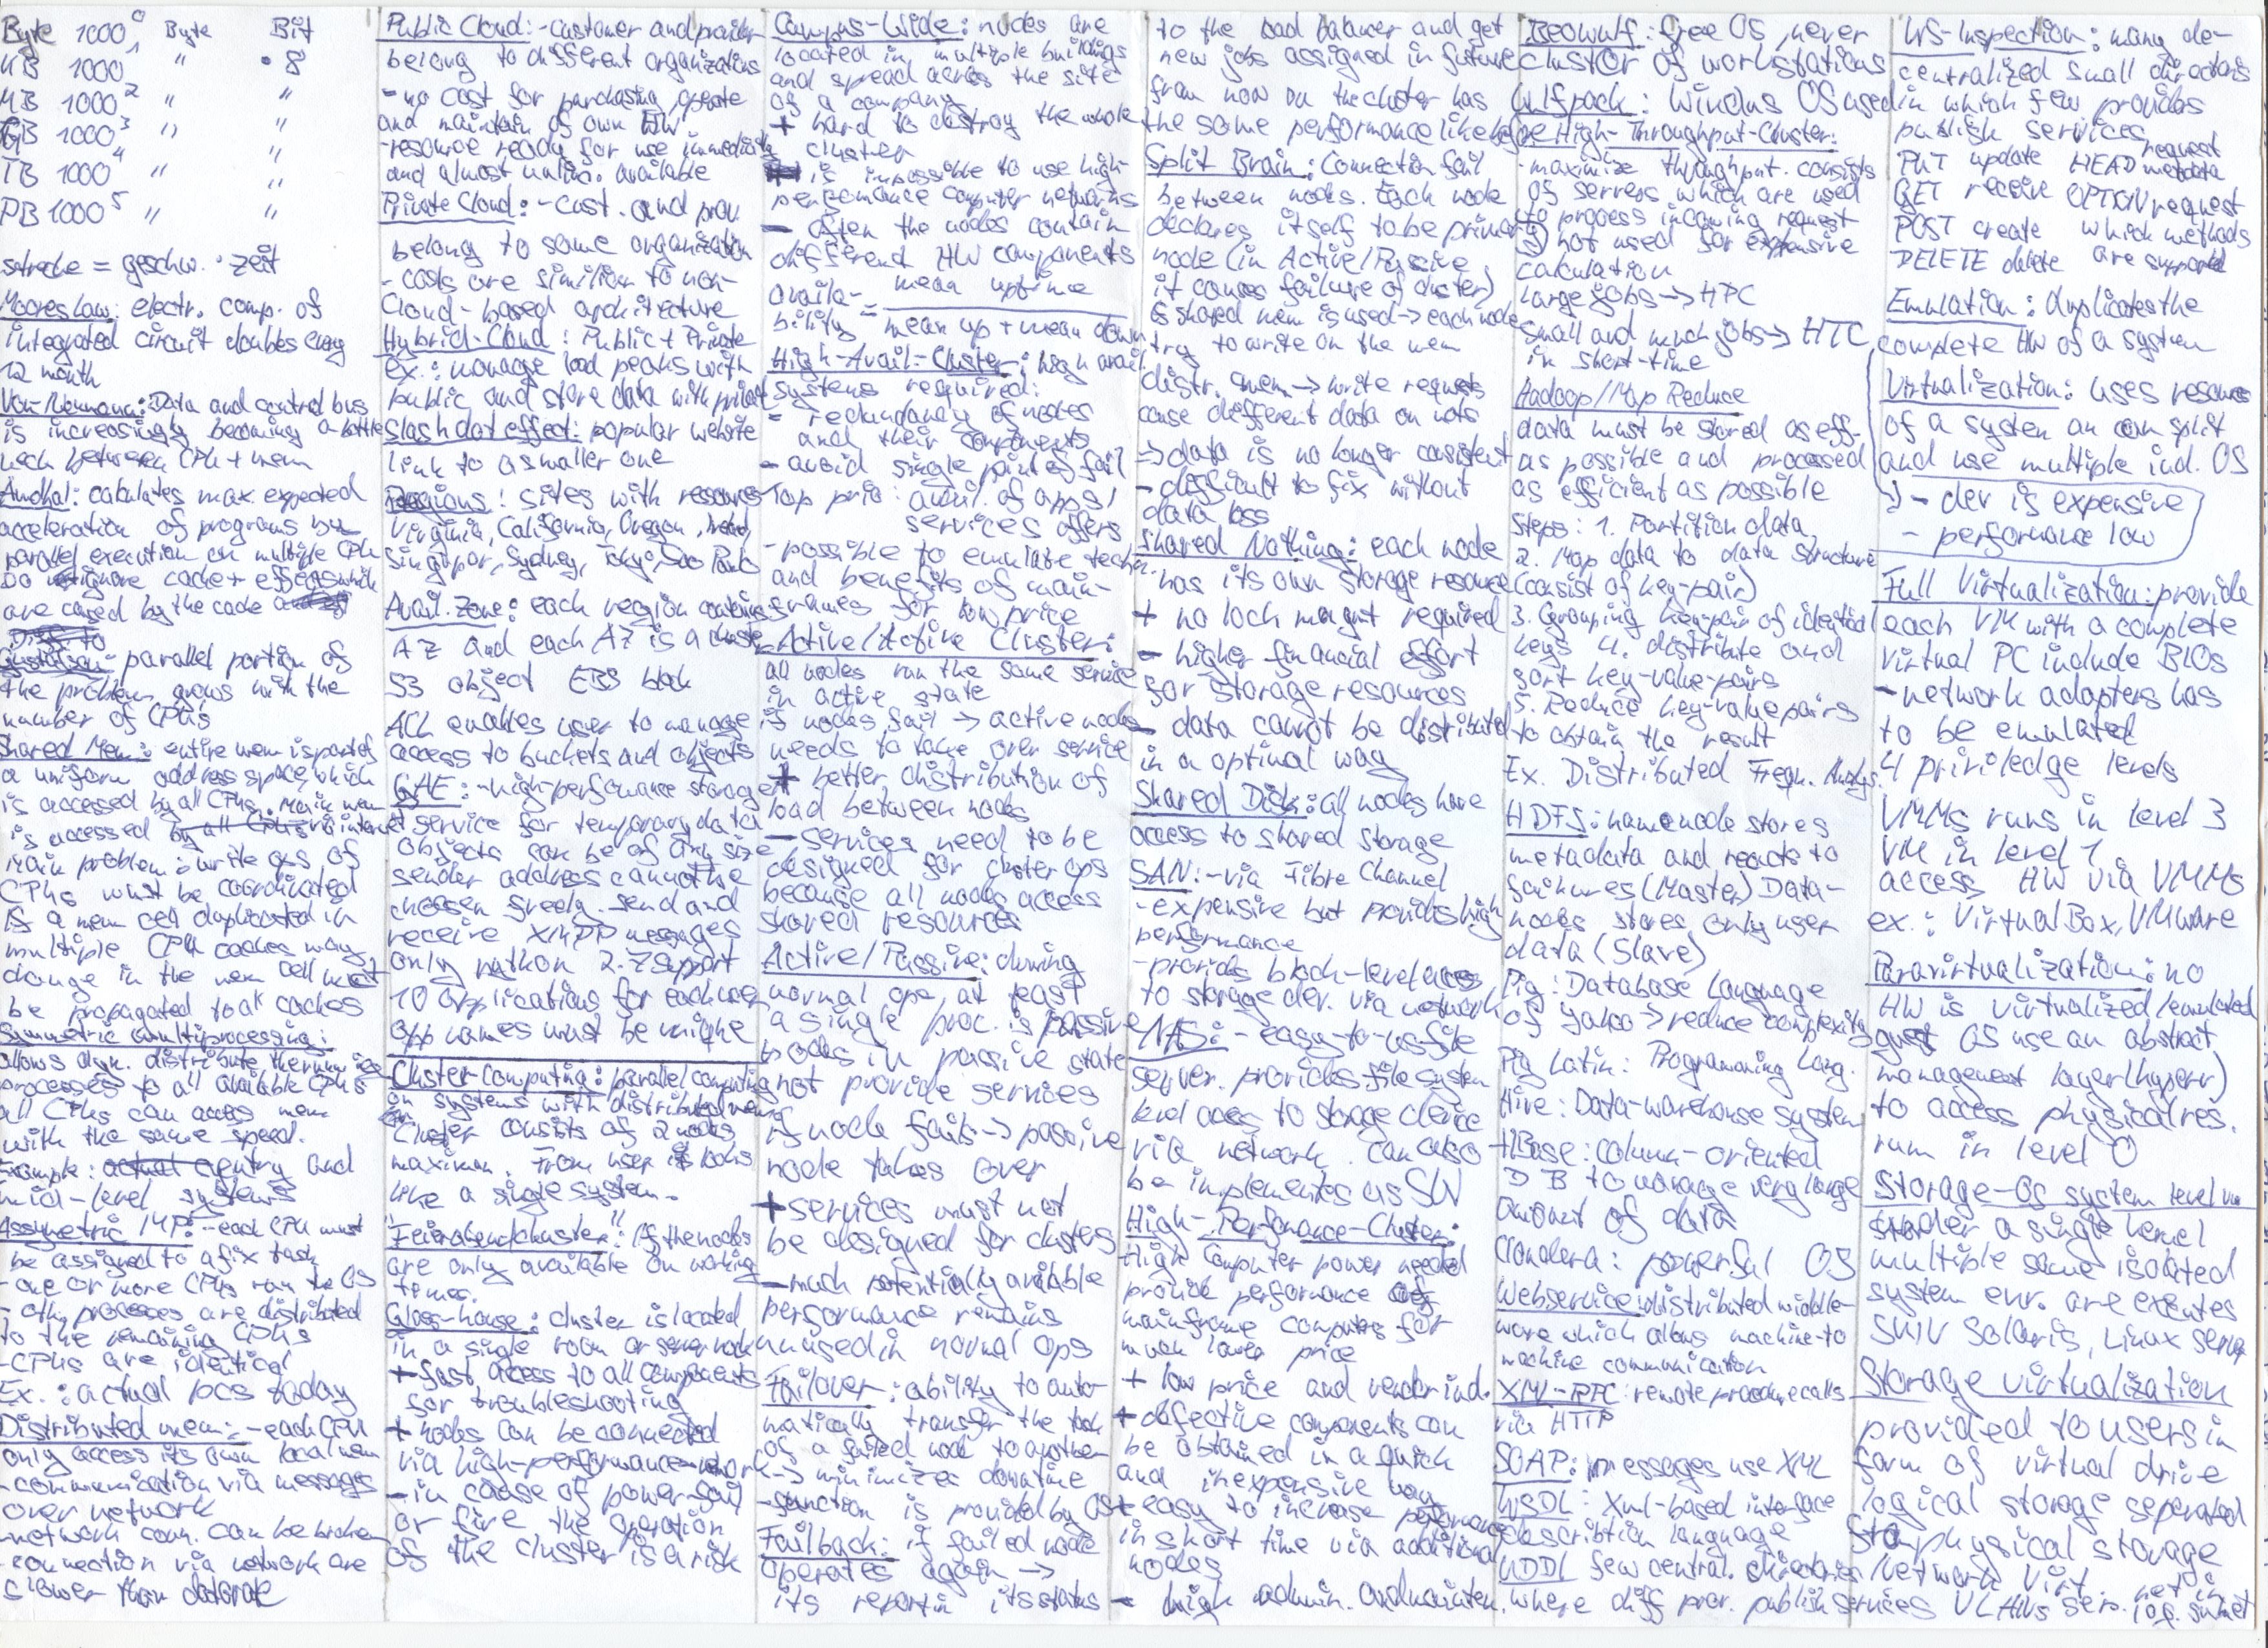 Byte 1000⁰ Byte Bit
KB 1000¹ " • 8
MB 1000² " "
GB 1000³ " "
TB 1000⁴ " "
PB 1000⁵ " "
strecke = geschw. · zeit
Moores Law: electr. comp. of
integrated circuit doubles every
12 month
Von-Neumann: Data and control bus
is increasingly becoming a bottle
neck between CPU + mem
Amdhal: calculates max. expected
acceleration of programs by
parallel execution on multiple CPUs
Do ignore cache + effects which
are caused by the cache
Gustafson: parallel portion of
the problem grows with the
number of CPUs
Shared Mem.: entire mem is part of
a uniform address space, which
is accessed by all CPUs. Main mem
is accessed by all CPUs via interc
Main problem: write ops of
CPUs must be coordinated
If a mem cell duplicated in
multiple CPU caches may
change in the mem cell must
be propagated to all caches
Symmetric multiprocessing:
allows dyn. distribute the running
processes to all available CPUs
all CPUs can access mem
with the same speed.
Example: actual entry and
mid-level systems
Assymetric MP: - each CPU must
be assigned to a fix task
- one or more CPUs run the OS
- oth. processes are distributed
to the remaining CPUs
- CPUs are identical
Ex.: actual pcs today
Distributed mem: - each CPU
only access its own local mem
- communication via messages
over network
- network conn. can be broken
- connection via network are
slower than datarate
Public Cloud: - customer and provider
belong to different organizations
- no cost for purchasing, operate
and maintain of own HW
- resource ready for use immediately
and almost unlim. available
Private Cloud: - cust. and prov.
belong to same organization
- costs are similiar to non-
Cloud-based architecture
Hybrid-Cloud: Public + Private
ex.: manage load peaks with
public and store data with privat
Slashdot effect: popular website
link to a smaller one
Regions: sites with resources
Virginia, California, Oregon, Irland,
Singapor, Sydney, Tokyo, Sao Paulo
Avail. Zone: each region contains
AZ and each AZ is a cluster
S3 object EBS block
ACL enables user to manage
access to buckets and objects
GAE: - high-performance storage
service for temporary data
objects can be of any size
sender address cannot be
choosen freely. send and
receive XMPP messages
only python 2.7 support
10 applications for each user
app names must be unique
Cluster-Computing: parallel computing
on systems with distributed mem
Cluster consists of 2 nodes
maximum. From user it looks
like a single system.
"Feierabendcluster": If the nodes
are only available on working
times.
Glass-house: cluster is located
in a single room or server rack
+ fast access to all components
for troubleshooting
+ nodes can be connected
via high-performance-network
- in cause of power-fail
or fire the operation
of the cluster is a risk
Campus-Wide: nodes are
located in multiple buildings
and spread across the site
of a company
+ hard to destroy the whole
cluster
- is impossible to use high-
pergomance computer networks
- often the nodes contain
different HW components
availability = mean uptime / mean up + mean down
High-Avail-Cluster: high avail.
systems required:
- redundancy of nodes
and their components
- avoid single point of fail
Top prio: avail. of apps/
services offers
- possible to emulate tech.
and benefits of main-
frames for low price
Active/Active Cluster:
all nodes run the same service
in active state
if nodes fail → active nodes
needs to take over service
+ better distribution of
load between nodes
- services need to be
designed for cluster ops
because all nodes access
shared resources
Active/Passive: during
normal ops, at least
a single proc. is passive
nodes in passive state
not provide services
if node fails → passive
node takes over
+ services must not
be designed for clusters
- much potentially available
performance remains
unused in normal ops
Failover: ability to auto-
matically transfer the task
of a failed node to another
→ minimizes downtime
- function is provided by OS
Failback: if failed node
operates again →
its reportin its status
to the load balancer and get
new jobs assigned in future
from now on the cluster has
the same performance like before
Split Brain: Connection fail
between nodes. Each node
declares itself to be primary
node (in Active/Passive
it causes failure of cluster)
If shared mem is used → each node
try to write on the mem
distr. mem → write requests
cause different data on nods
⇒ data is no longer consistent
- difficult to fix without
data loss
Shared Nothing: each node
has its own storage resource
+ no lock mangt required
- higher financial effort
for storage resources
- data cannot be distributed
in a optimal way
Shared Disk: all nodes have
access to shared storage
SAN: - via Fibre Channel
- expensive but provids high
performance
- provids block-level access
to storage dev. via network
NAS: - easy-to-us-file
server. provides file system
level access to storage device
via network. can also
be implementes as SW
High-Perfomance-Cluster:
High Computer power needed
provide performance of
mainframe computers for
much lower price
+ low price and vendor ind.
+ defective components can
be obtained in a quick
and inexpensive way
+ easy to increase performance
in short time via additional
nodes
- high admin. and mainten.
Beowulf: free OS, never
cluster of workstations
Wulfpack: Windws OS used
High-Throughput-Cluster:
- maximize throughput. consists
of servers which are used
to process incoming request
→ not used for expensive
calculation
Large jobs → HPC
Small and much jobs → HTC
in short-time
Hadoop/Map Reduce
data must be stored as eff.
as possible and processed
as efficient as possible
Steps: 1. Partition data
2. Map data to data structure
(consist of key-pair)
3. Grouping key-pair of identical
keys 4. distribute and
sort key-value-pairs
5. Reduce key-value pairs
to obtain the result
Ex. Distributed Frequ. Analys.
HDFS: namenode stores
metadata and reacts to
failures (Master) Data-
nodes stores only user
data (Slave)
Pig: Database Language
of yahoo → reduce complexity
Pig Latin: Programming Lang.
Hive: Data-warehouse system
HBase: column-oriented
DB to manage very large
amount of data
Cloudera: powerful OS
Webservice: distributed middle-
ware which allows machine-to
machine communication
XML-RPC: remote procedure calls
via HTTP
SOAP: messages use XML
WSDL: Xml-based interface
describtion language
UDDI few central. directories
where diff prov. publish services
WS-Inspection: many de-
centralized small directories
in which few provides
publish services
PUT update HEAD request metadata
GET receive OPTION request
POST create which methods
DELETE delete are supported
Emulation: duplicates the
complete HW of a system
- dev is expensive
- performance low
Virtualization: uses resources
of a system an can split
and use multiple ind. OS
Full Virtualization: provide
each VM with a complete
virtual PC include BIOs
- network adapters has
to be emulated
4 priviledge levels
VMMs runs in level 3
VM in level 1
access HW via VMMs
ex.: VirtualBox, VMware
Paravirtualization: no
HW is virtualized/emulated
guest OS use an abstract
management layer (hyperv)
to access physical res.
run in level 0
Storage-Os system level vir
under a single kernel
multiple same isolated
system env. are executes
SUN Solaris, Linux Server
Storage virtualization
provided to users in
form of virtual drive
logical storage seperated
physical storage
Network Virt. net in
VLANs sep. log. subnet